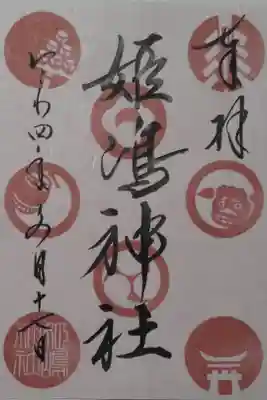 奉拝
姫嶋神社
令わ四年五月十一日
姫嶋神社